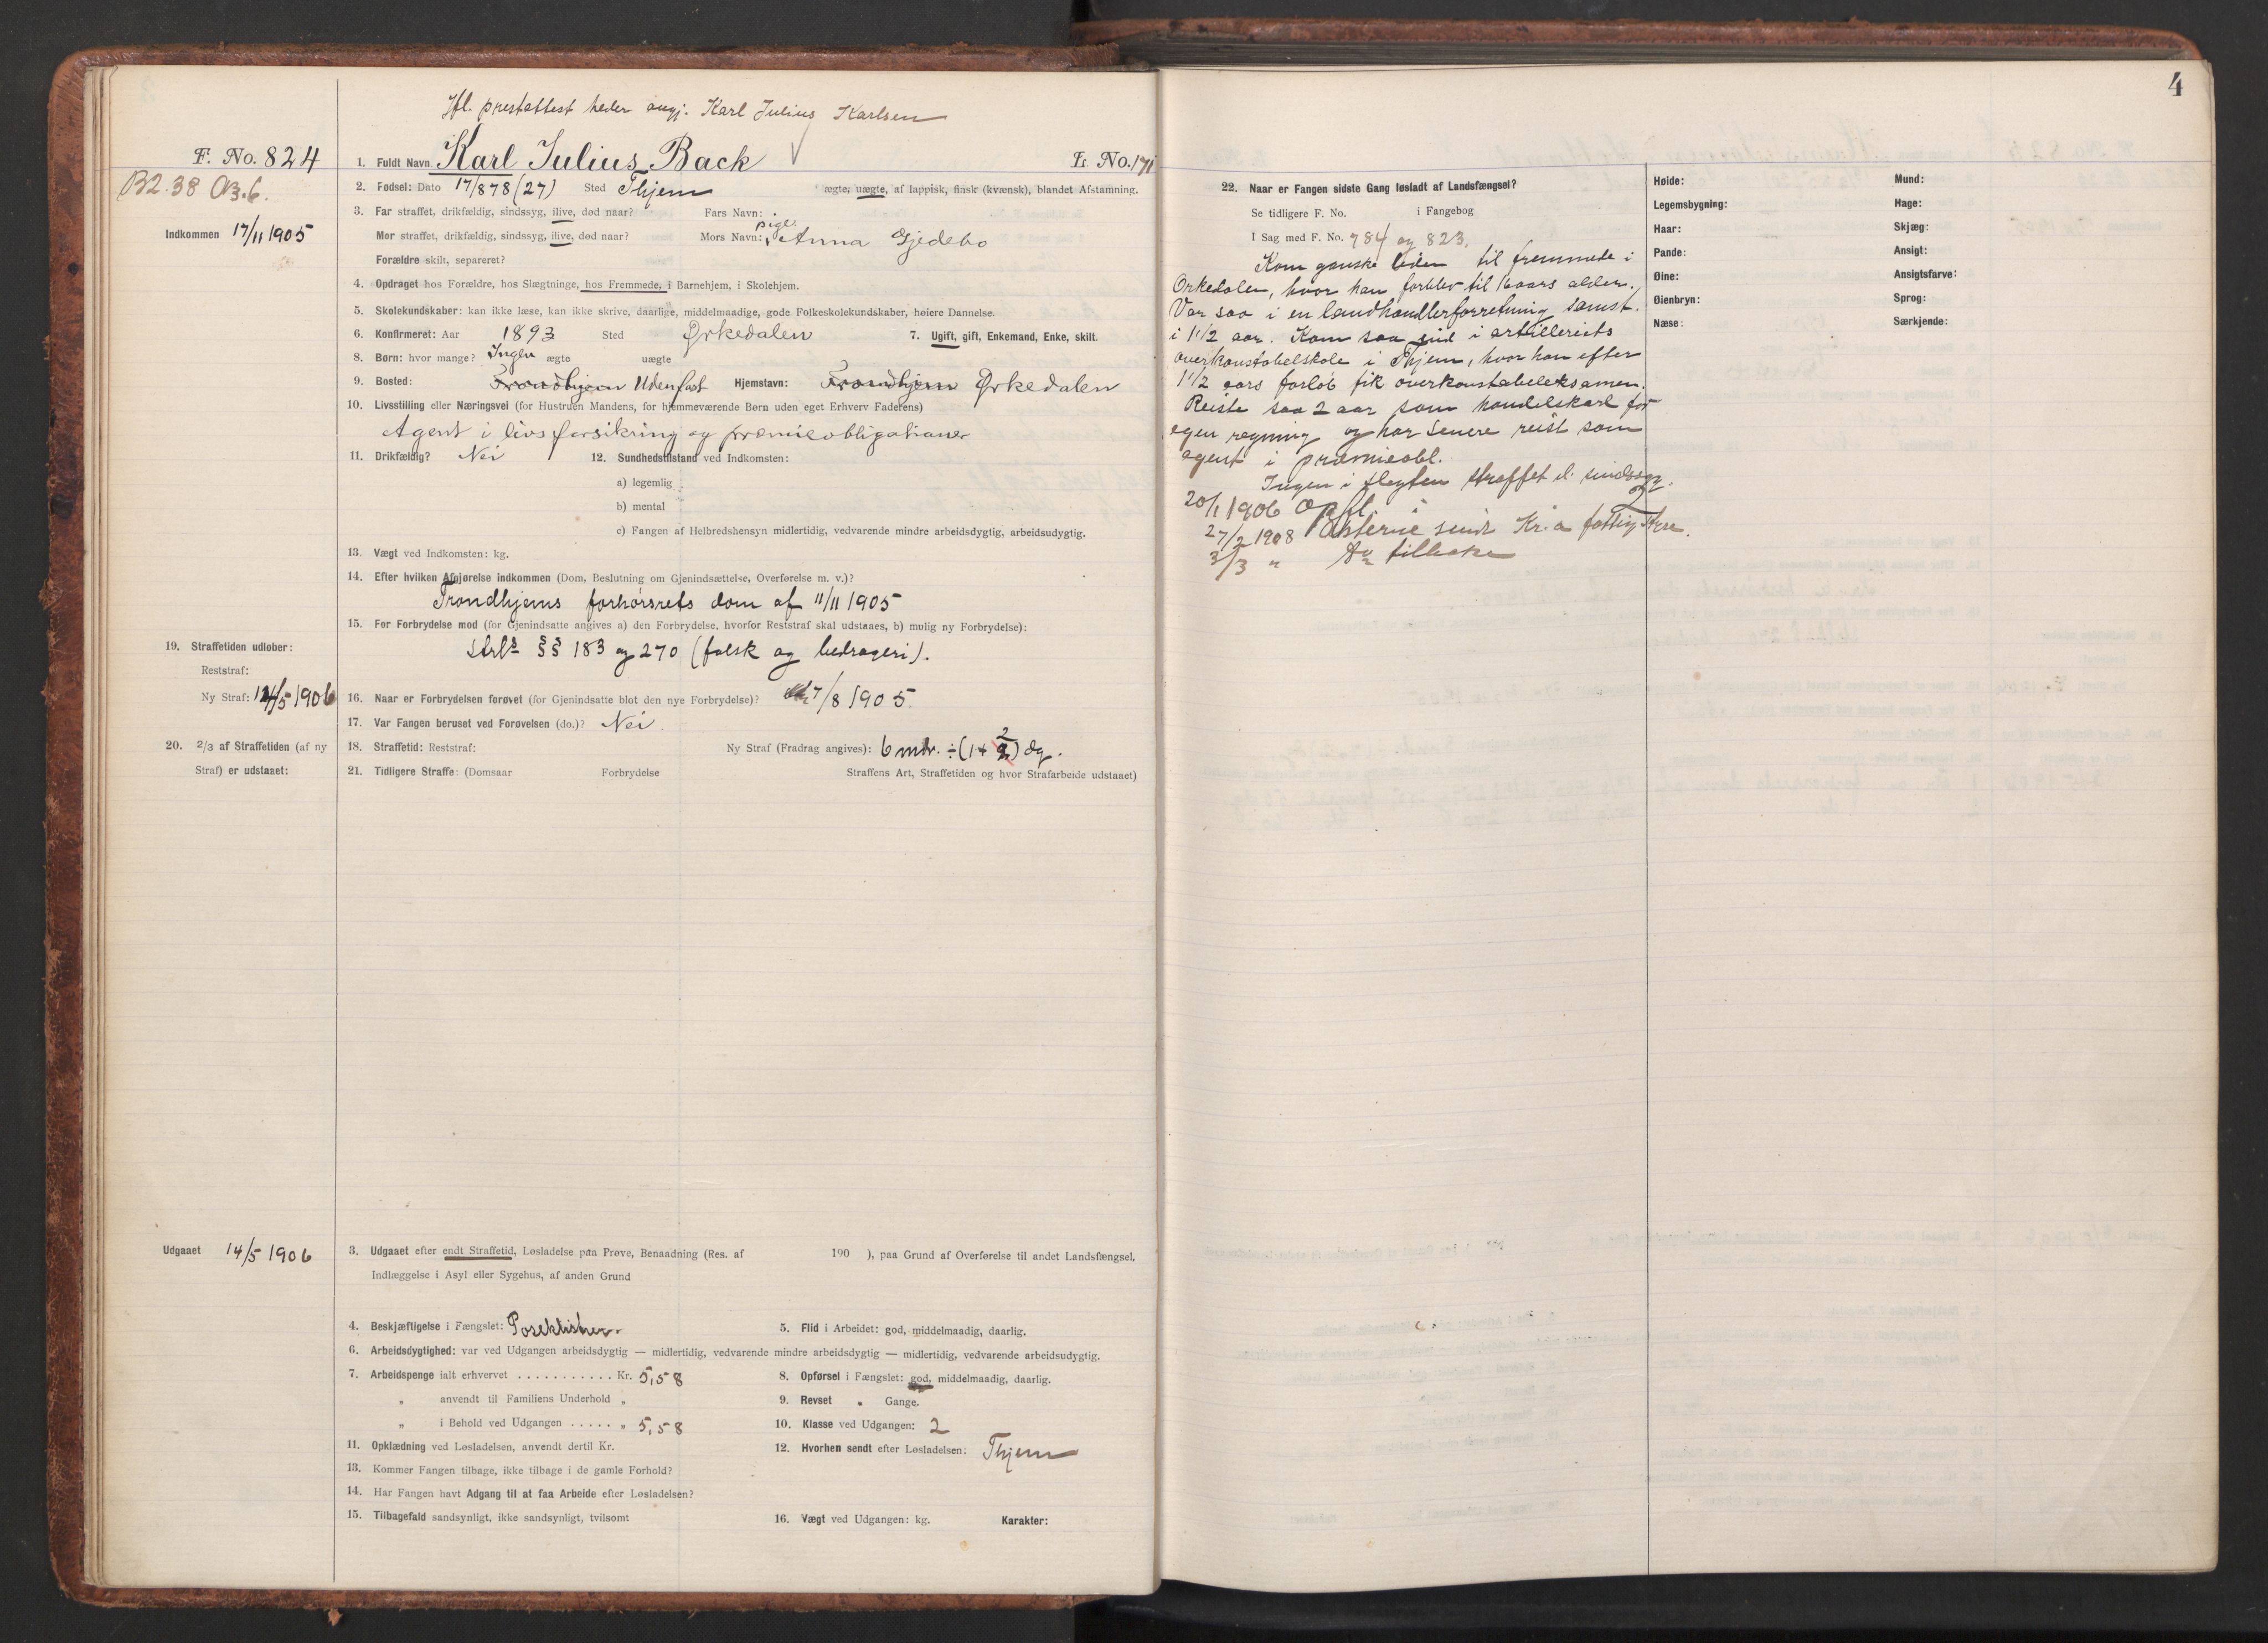 Ifl. prestattest heder angj. Karl Julius Karlsen
F. No. 824
1. Fuldt Navn Karl Julius Back
L. No. 171
B2.38 Oz.6.
2. Fødsel: Dato 17/878 (27) Sted Thjem ægte, uægte, af lappisk, finsk (kvænsk), blandet Afstamning.
3. Far straffet, drikfældig, sindssyg, ilive, død naar? Fars Navn:
Indkommen 17/11 1905
Mor straffet, drikfældig, sindssyg, ilive, død naar? Mors Navn: pige Anna Gjedebo
Forældre skilt, separeret?
4. Opdraget hos Forældre, hos Slægtninge, hos Fremmede, i Barnehjem, i Skolehjem.
5. Skolekundskaber: kan ikke læse, kan ikke skrive, daarlige, middelmaadige, gode Folkeskolekundskaber, høiere Dannelse.
6. Konfirmeret: Aar 1893 Sted Ørkedalen 7. Ugift, gift, Enkemand, Enke, skilt.
8. Børn: hvor mange? Ingen ægte uægte
9. Bosted: Trondhjem Uden fast Hjemstavn: Trondhjem Ørkedalen
10. Livsstilling eller Næringsvei (for Hustruen Mandens, for hjemmeværende Børn uden eget Erhverv Faderens)
Agent i livsforsikring og præmieobligationer
11. Drikfældig? Nei 12. Sundhedstilstand ved Indkomsten:
a) legemlig
b) mental
c) Fangen af Helbredshensyn midlertidig, vedvarende mindre arbeidsdygtig, arbeidsudygtig.
13. Vægt ved Indkomsten: kg.
14. Efter hvilken Afgjørelse indkommen (Dom, Beslutning om Gjenindsættelse, Overførelse m. v.)?
Trondhjems forhørsrets dom af 11/11 1905
15. For Forbrydelse mod (for Gjenindsatte angives a) den Forbrydelse, hvorfor Reststraf skal udstaaes, b) mulig ny Forbrydelse):
Strls §§ 183 og 270 (falsk og bedrageri).
19. Straffetiden udløber:
Reststraf:
Ny Straf: 14/5 1906
16. Naar er Forbrydelsen forøvet (for Gjenindsatte blot den nye Forbrydelse)? 7/8 1905.
17. Var Fangen beruset ved Forøvelsen (do.)? Nei.
20. 2/3 af Straffetiden (af ny
Straf) er udstaaet:
18. Straffetid: Reststraf: Ny Straf (Fradrag angives): 6 mdr. ÷ (1 + 2) dg.
21. Tidligere Straffe: (Domsaar Forbrydelse Straffens Art, Straffetiden og hvor Strafarbeide udstaaet)
Udgaaet 14/5 1906
3. Udgaaet efter endt Straffetid, Løsladelse paa Prøve, Benaadning (Res. af 190 ), paa Grund af Overførelse til andet Landsfængsel.
Indlæggelse i Asyl eller Sygehus, af anden Grund
4. Beskjæftigelse i Fængslet: Poseklistrer. 5. Flid i Arbeidet: god, middelmaadig, daarlig.
6. Arbeidsdygtighed: var ved Udgangen arbeidsdygtig — midlertidig, vedvarende mindre arbeidsdygtig — midlertidig, vedvarende arbeidsudygtig.
7. Arbeidspenge ialt erhvervet . . . . . . . . . . . Kr. 5,58 8. Opførsel i Fængslet: god, middelmaadig, daarlig.
„ anvendt til Familiens Underhold „ 9. Revset „ Gange.
„ i Behold ved Udgangen . . . . . „ 5,58 10. Klasse ved Udgangen: 2
11. Opklædning ved Løsladelsen, anvendt dertil Kr. 12. Hvorhen sendt efter Løsladelsen: Thjem
13. Kommer Fangen tilbage, ikke tilbage i de gamle Forhold?
14. Har Fangen havt Adgang til at faa Arbeide efter Løsladelsen?
15. Tilbagefald sandsynligt, ikke sandsynligt, tvilsomt 16. Vægt ved Udgangen: kg. Karakter:
4
22. Naar er Fangen sidste Gang løsladt af Landsfængsel?
Se tidligere F. No. i Fangebog
I Sag med F. No. 784 og 823.
Kom ganske liden til fremmede i
Orkedalen, hvor han forblev til 16 aars alder.
Var saa i en landhandlerforretning samst.
i 1 1/2 aar. Kom saa ind i artilleriets
overkonstabelskole i Thjem, hvor han efter
1 1/2 aars forløb fik overkonstabeleksamen.
Reiste saa 2 aar som handelskarl for
egen regning og har senere reist som
agent i præmieobl.
Ingen i slegten straffet el. sindssyg.
20/1 1906
27/2 1908 Akterne sendt Kr.a fattigstyre.
3/3 " Do tilbake
Høide:
Legemsbygning:
Haar:
Pande:
Øine:
Øienbryn:
Næse:
Mund:
Hage:
Skjæg:
Ansigt:
Ansigtsfarve:
Sprog:
Særkjende: